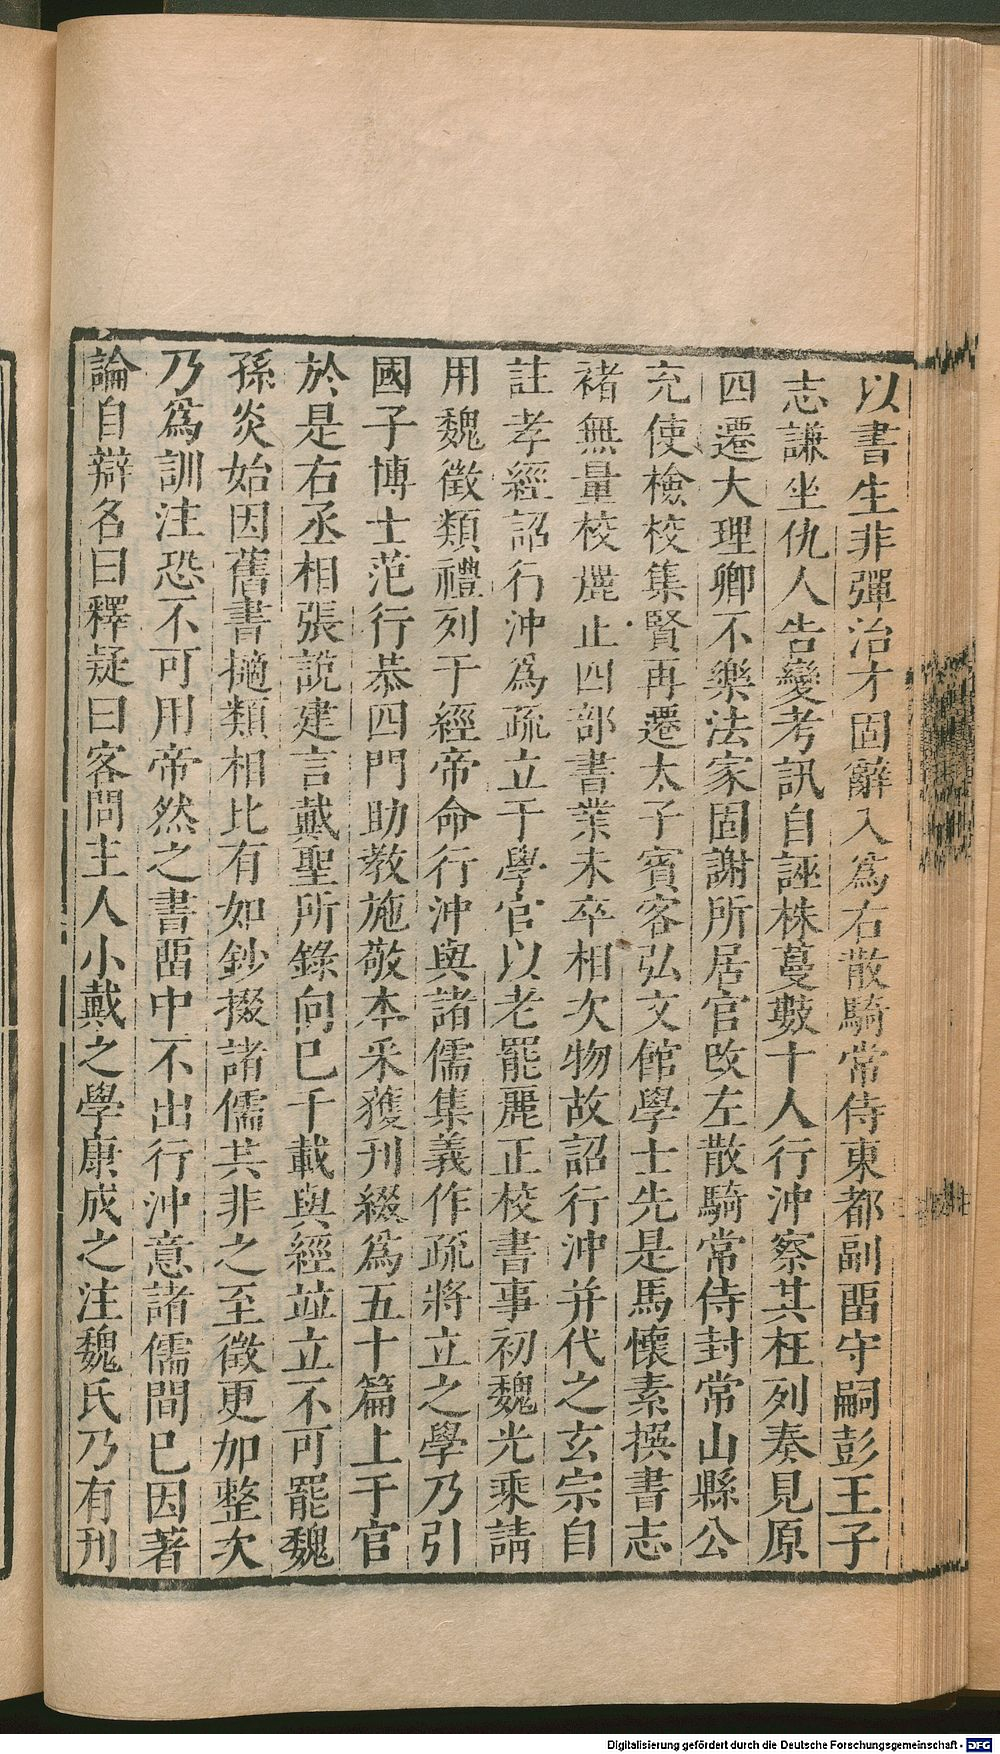 以書生非彈治才固辭入爲右散騎常侍東都副畱守嗣彭王子
志謙坐仇人告變考訊自誣株蔓數十人行沖察其枉列奏見原
四遷大理卿不樂法家固謝所居官改左散騎常侍封常山縣公
充使檢校集賢再遷太子賓客弘文館學士先是馬懷素撰書志
褚無量校麗止四部書業未卒相次物故詔行沖并代之玄宗自
註孝經詔行沖爲疏立于學官以老罷麗正校書事初魏光乘請
用魏徵類禮列于經帝命行沖與諸儒集義作疏將立之學乃引
國子博士范行恭四門助教施敬本采獲刊綴爲五十篇上于官
於是右丞相張說建言戴聖所錄向巳千載與經竝立不可罷魏
孫炎始因舊書擿類相比有如鈔掇諸儒共非之至徵更加整次
乃爲訓注恐不可用帝然之書畱中不出行沖意諸儒間巳因著
論自辯名曰釋疑曰客問主人小戴之學康成之注魏氏乃有刊
Digitalisierung gefördert durch die Deutsche Forschungsgemeinschaft - DFG